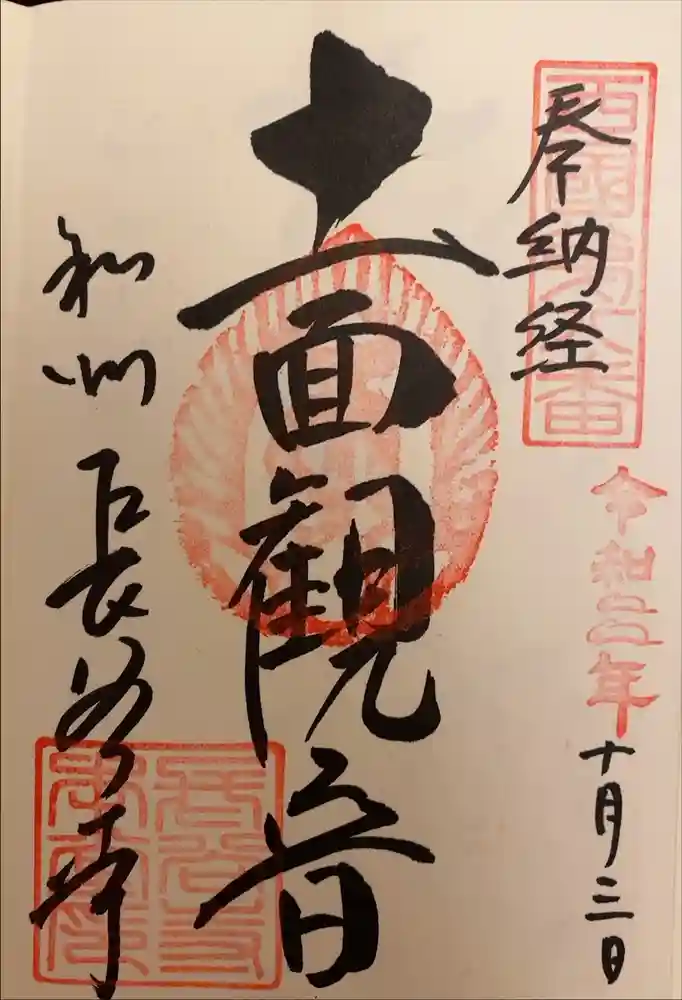 西國第八番
奉納経
令和二年十月三日
十一面観音
和州 長谷寺